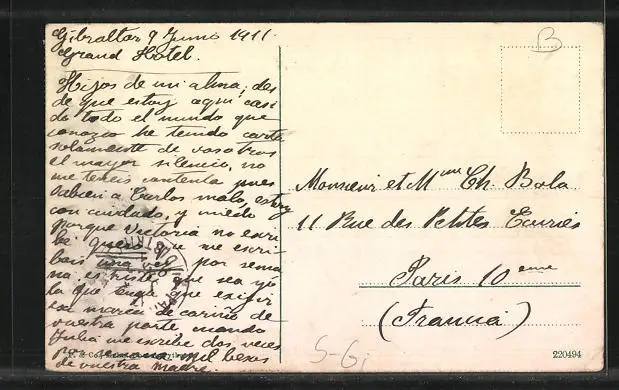 Gibraltar 9 Junio 1911.
Grand Hotel.
Hijos de mi alma; des
de que estoy aquí casi
da todo el mundo que
conozco he tenido carta
solamente de vosotros
el mayor silencio, no
me teneis contenta pues
sabien a Carlos malo, estoy
con cuidado, y miedo
porque Victoria no escri
be quiero que me escri
bais una vez por sema
na es triste que sea yo
la que tenga que exigir
esa marca de cariño de
vuestra parte, cuando
Julia me escribe dos veces
mil besos
de vuestra madre.
B
Monsieur et Mme Ch. Bola
11 Rue des Petites Ecuries
Paris 10eme
(Francia)
220494